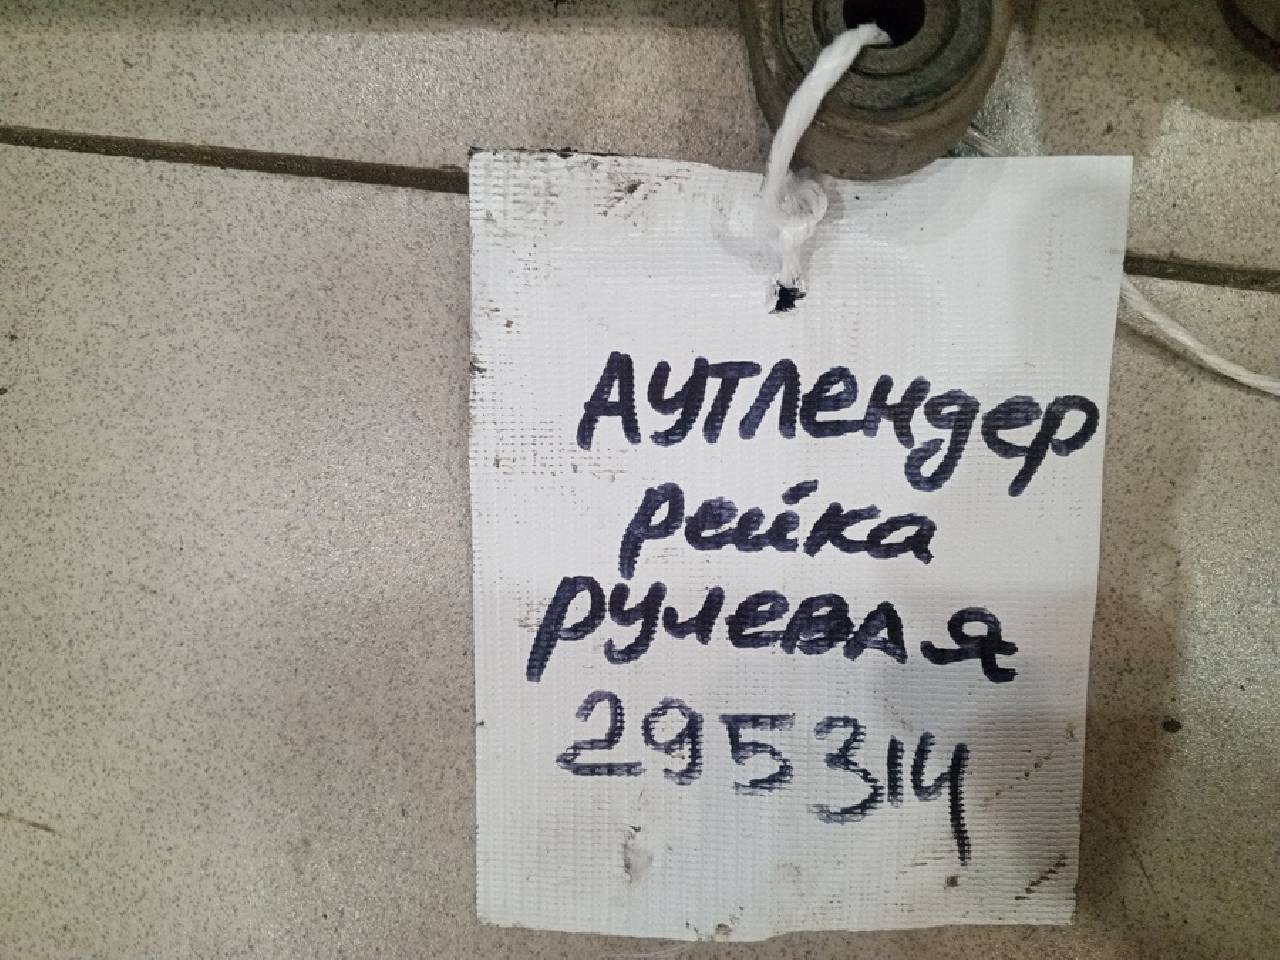 Аутлендер
рейка
рулевая
295314